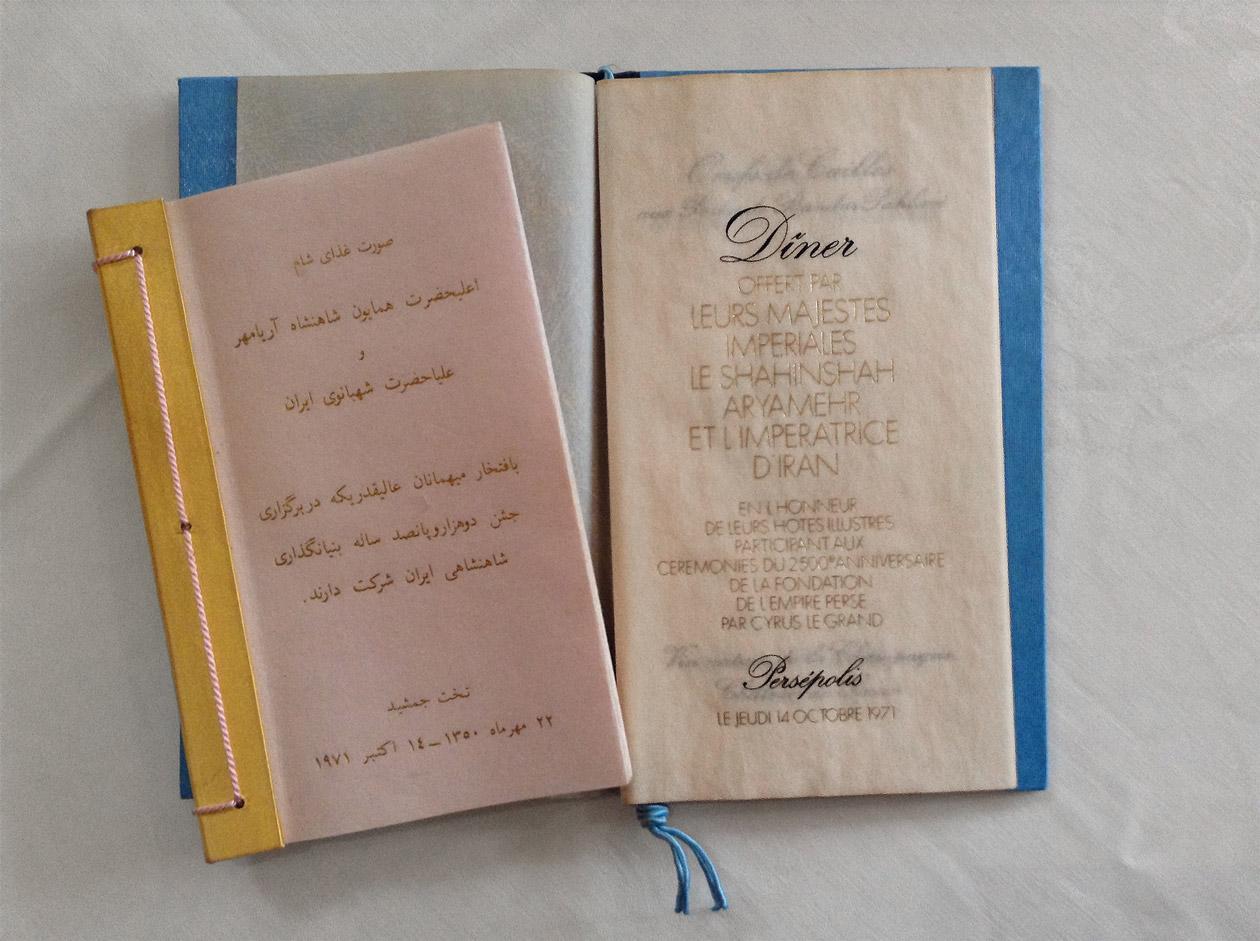 صورت غذای شام
اعلیحضرت همایون شاهنشاه آریامهر
و
علیاحضرت شهبانوی ایران
بافتخار میهمانان عالیقدریکه در برگزاری
جشن دوهزاروپانصد ساله بنیانگذاری
شاهنشاهی ایران شرکت دارند.
تخت جمشید
۲۲ مهرماه ۱۳۵۰ - ۱٤ اکتبر ۱۹۷۱
Dîner
OFFERT PAR
LEURS MAJESTES
IMPERIALES
LE SHAHINSHAH
ARYAMEHR
ET L'IMPERATRICE
D'IRAN
EN L'HONNEUR
DE LEURS HOTES ILLUSTRES
PARTICIPANT AUX
CEREMONIES DU 2500e ANNIVERSAIRE
DE LA FONDATION
DE L'EMPIRE PERSE
PAR CYRUS LE GRAND
Persépolis
LE JEUDI 14 OCTOBRE 1971